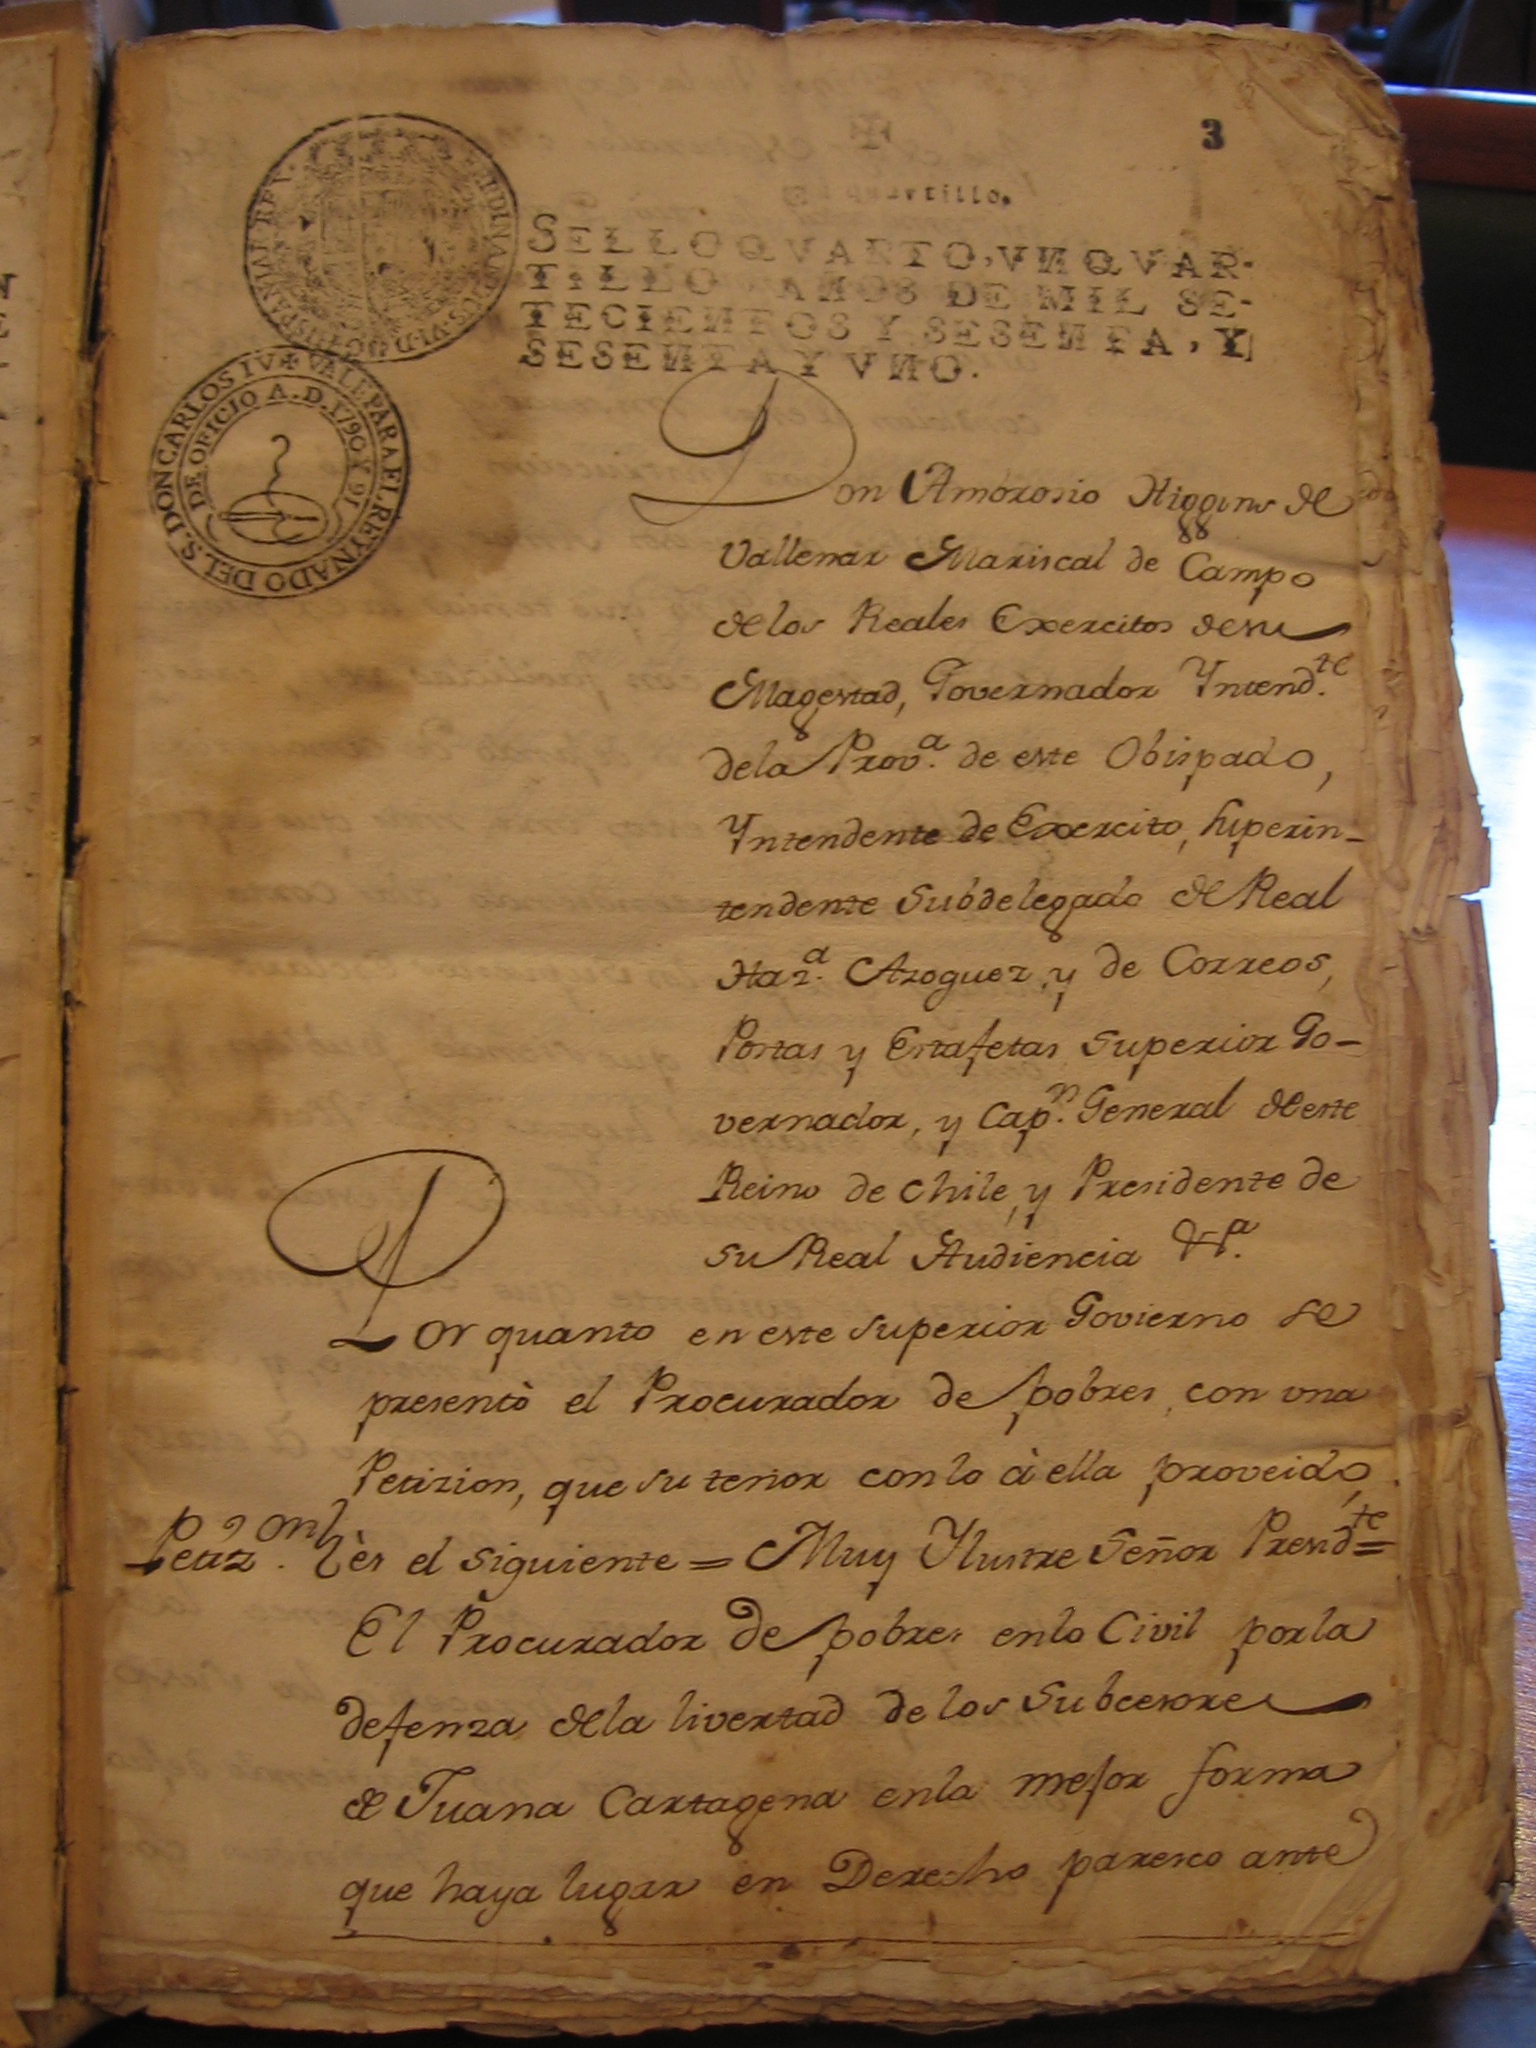 3
quartillo.
SELLO QVARTO, VN QVAR-
TILLO AÑOS DE MIL SE-
TECIENTOS Y SESENTA, Y
SESENTA Y VNO.
DON CARLOS IV ✠ VALE PARA EL REYNADO DEL S.
DE OFICIO A. D. 1790 Y 91
Don Ambrosio Higgins de
Vallenar Mariscal de Campo
de los Reales Exercitos de su
Magestad, Governador Yntend.te
dela Prov.a de este Obispado,
Yntendente de Exercito, Superin-
tendente Subdelegado de Real
Haz.a Azoguez, y de Correos,
Postas y Estafetas, Superior Go-
vernador, y Cap.n General de este
Reino de Chile, y Presidente de
su Real Audiencia &.a
Por quanto en este superior Govierno se
presentò el Procurador de pobres, con una
Petizion, que su tenor con lo à ella proveido,
Petiz.on es el siguiente = Muy Ylustre Señor Presid.te =
El Procurador de pobres en lo Civil por la
defenza dela livertad de los Subcesores
de Juana Cartagena en la mejor forma
que haya lugar en Derecho paresco ante